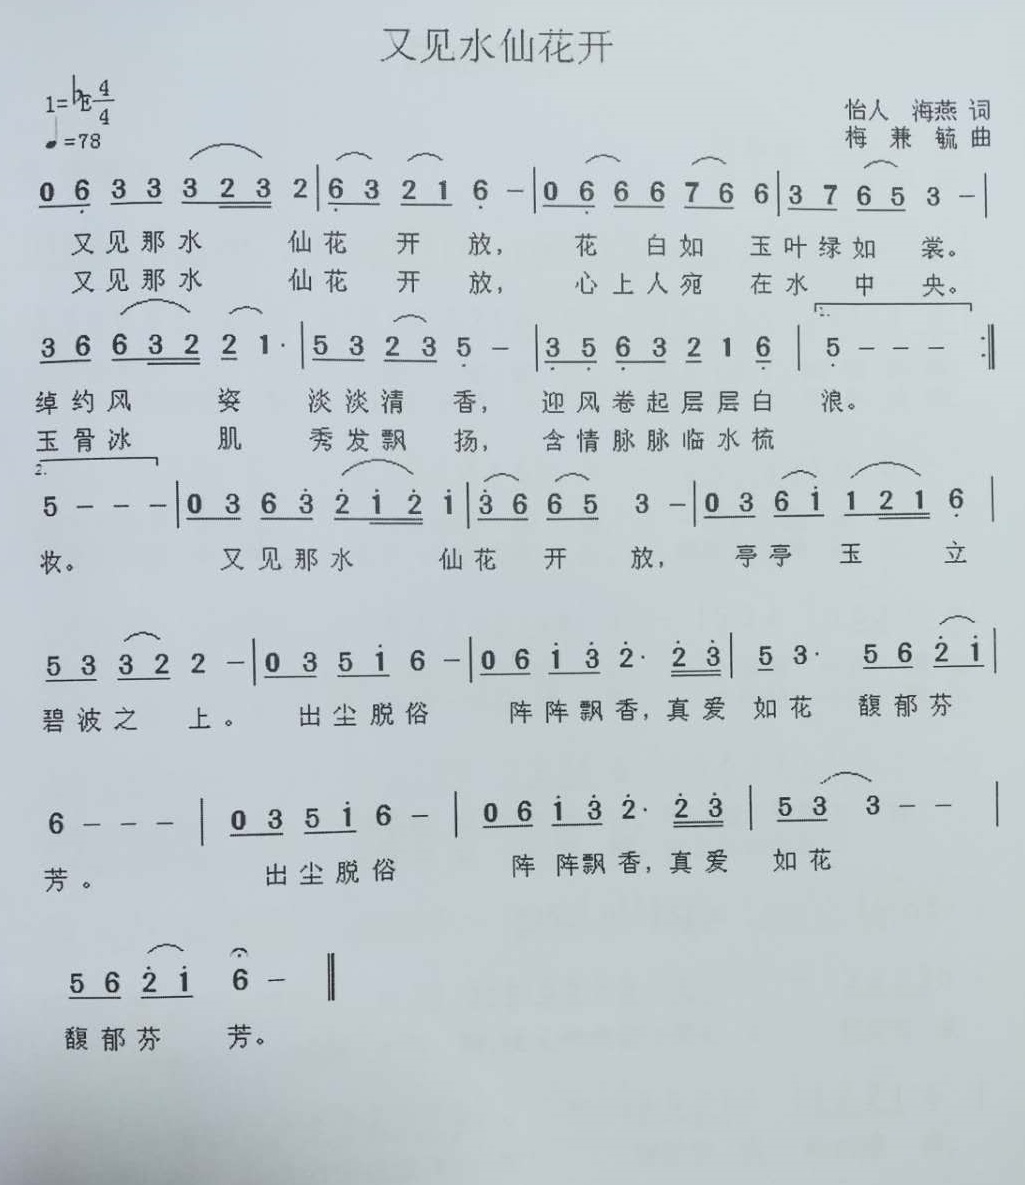 又见水仙花开
1=♭E 4/4
♩=78
怡人 海燕 词
梅兼毓 曲
0 6̣ 3 3 3 2 3 2 | 6̣ 3 2 1 6̣ － | 0 6̣ 6 6 7 6 6 | 3 7 6 5 3 － |
又见那水 仙花 开 放， 花 白如 玉叶绿如 裳。
又见那水 仙花 开 放， 心上人宛 在水 中 央。
3 6 6 3 2 2 1· | 5 3 2 3 5̣ － | 3̣ 5̣ 6̣ 3 2 1 6̣ | 1. 5̣ － － － :‖
绰约风 姿 淡淡清 香， 迎风卷起层层白 浪。
玉骨冰 肌 秀发飘 扬， 含情脉脉临水梳
2. 5 － － － | 0 3 6 3̇ 2̇ 1̇ 2̇ 1̇ | 3̇ 6 6 5 3 － | 0 3 6 1̇ 1 2 1 6̣ |
妆。 又见那水 仙花 开 放， 亭亭 玉 立
5 3 3 2 2 － | 0 3 5 1̇ 6 － | 0 6 1̇ 3̇ 2̇· 2̇ 3̇ | 5 3· 5 6 2̇ 1̇ |
碧波之 上。 出尘脱俗 阵阵飘香，真爱 如花 馥郁芬
6 － － － | 0 3 5 1̇ 6 － | 0 6 1̇ 3̇ 2̇· 2̇ 3̇ | 5 3 3 － － |
芳。 出尘脱俗 阵阵飘香，真爱 如花
5 6 2̇ 1̇ 6 － ‖
馥郁芬 芳。